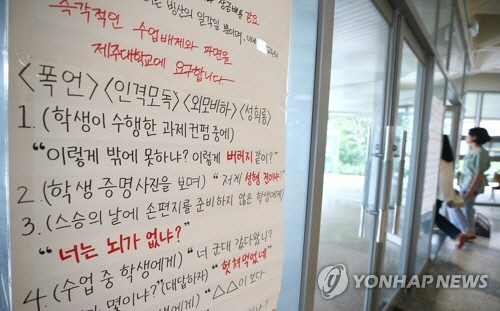 는 빙산의 일각일 뿐이며,
즉각적인 수업배제와 파면을
제주대학교에 요구합니다
<폭언> <인격모독> <외모비하> <성희롱>
1. (학생이 수행한 과제 컨펌중에)
"이렇게 밖에 못하냐? 이렇게 버러지 같이?"
2. (학생 증명사진을 보며) "저게 성형 전이냐?"
3. (스승의 날에 손편지를 준비하지 않은 학생에게)
"너는 뇌가 없냐?"
4. (수업 중 학생에게) "너 군대 갔다왔니?
몇이냐?" (대답하자) "헛쳐먹었네"
에게) "△△이 보다
YONHAP NEWS